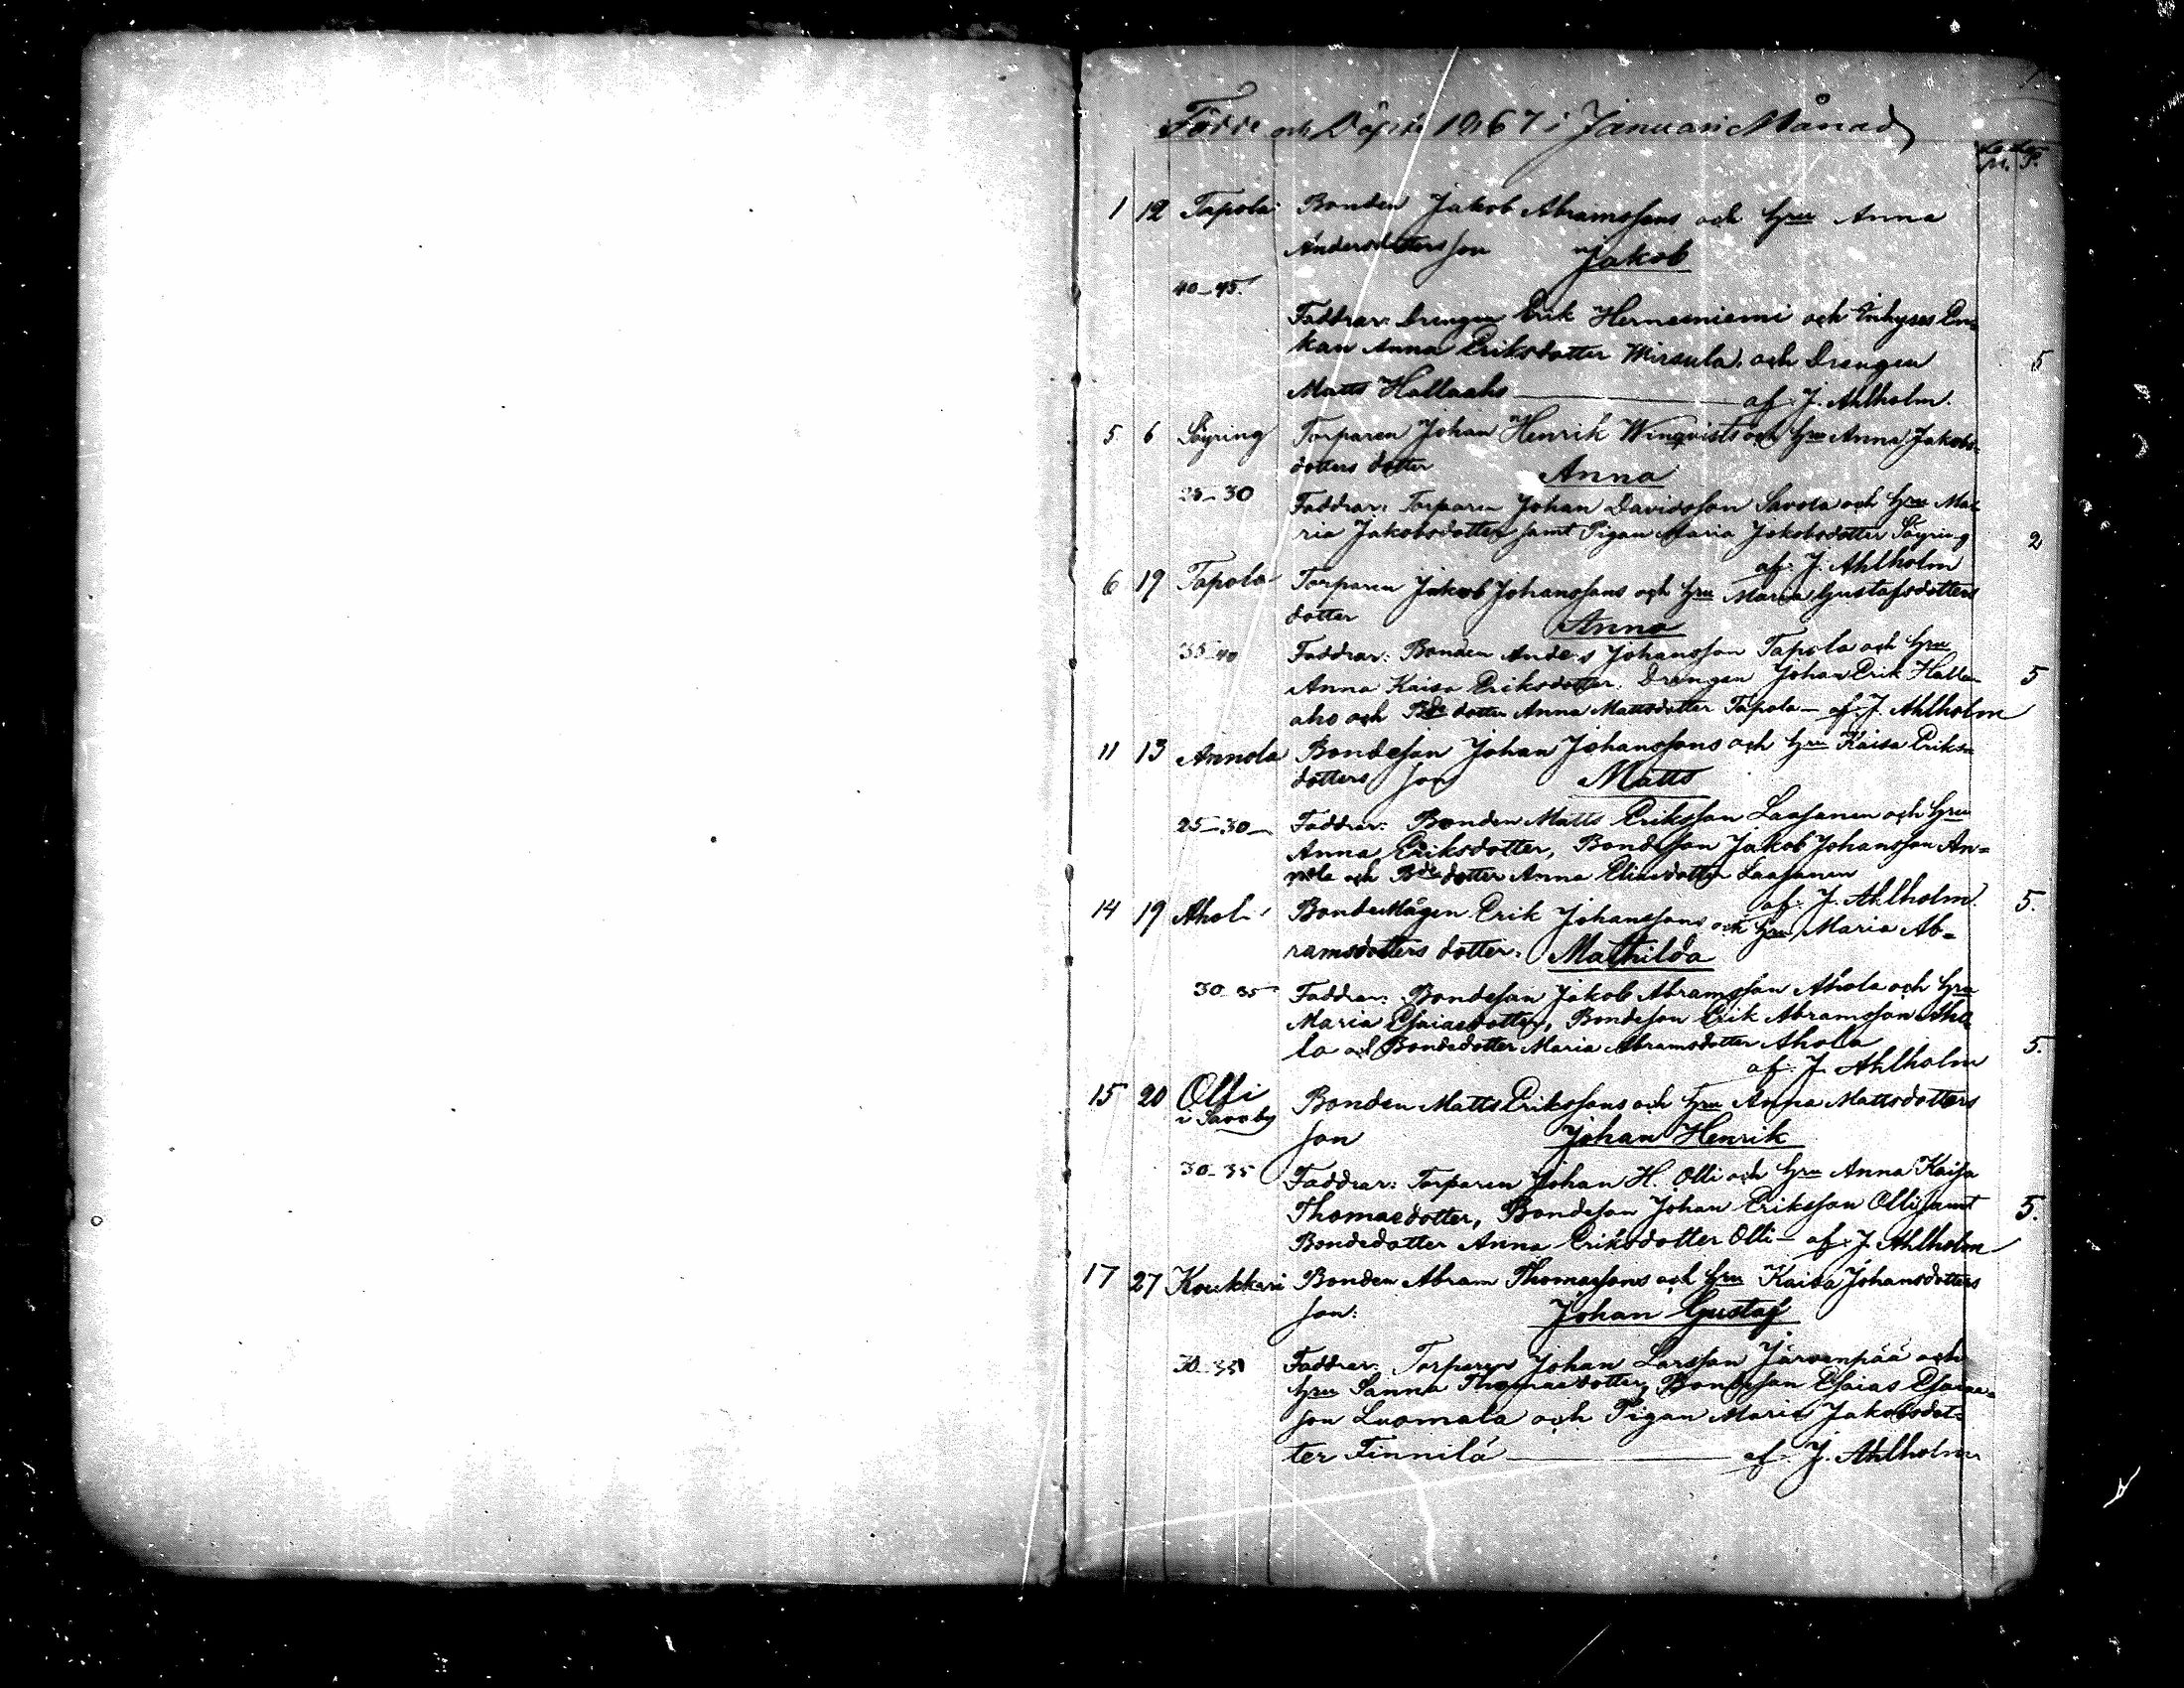 1
Födde och Döpte 1867 i Januari Månad
M. P.
1 12 Tapola Bonden Jakob Abramssons och Hru Anna
Andersdotters son Jakob
40-45.
Faddrar: Drengen Erik Hernesniemi och Inhyses En-
kan Anna Eriksdotter Wirsula, och Drengen 5
Matts Hallaaho af J. Ahlholm.
5 6 Söyring Torparen Johan Henrik Winqvists och Hru Anna Jakobs-
dotters dotter Anna
25-30 Faddrar: Torparen Johan Davidsson Savola och Hru Ma-
ria Jakobsdotter samt Pigan Maria Jakobsdotter Söyring 2
af J. Ahlholm
6 19 Tapola Torparen Jakob Johanssons och Hru Maria Gustafsdotters
dotter Anna
35-40 Faddrar: Bonden Anders Johansson Tapola och Hru
Anna Kaisa Eriksdotter. Drengen Johan Erik Halla- 5
aho och Bde dotter Anna Mattsdotter Tapola - af J. Ahlholm
11 13 Annola Bondeson Johan Johanssons och Hru Kaisa Eriks-
dotters son Matts
25-30 Faddrar: Bonden Matts Eriksson Laasanen och Hru
Anna Eriksdotter, Bondeson Jakob Johansson An-
nola och Bde dotter Anna Eliasdotter Laasanen
af J. Ahlholm. 5.
14 19 Ahola Bondemågen Erik Johanssons och Hru Maria Ab-
ramsdotters dotter. Mathilda
30-35 Faddrar: Bondeson Jakob Abramsson Ahola och Hru
Maria Esaiasdotter, Bondeson Erik Abramsson Aho-
la och Bondedotter Maria Abramsdotter Ahola 5.
af J. Ahlholm
15 20 Olli Bonden Matts Erikssons och Hru Anna Mattsdotters
i Savoby
son Johan Henrik
30-35 Faddrar: Torparen Johan H. Olli och Hru Anna Kaisa
Thomasdotter, Bondeson Johan Eriksson Olli samt 5.
Bondedotter Anna Eriksdotter Olli - af J. Ahlholm
17 27 Koukkari Bonden Abram Thomassons och Hru Kaisa Johansdotters
son: Johan Gustaf
30-35 Faddrar: Torparen Johan Larsson Järvenpää och
Hru Sanna Thomasdotter, Bondeson Esaias Esaias-
son Luomala och Pigan Maria Jakobsdot-
ter Finnilä af J. Ahlholm